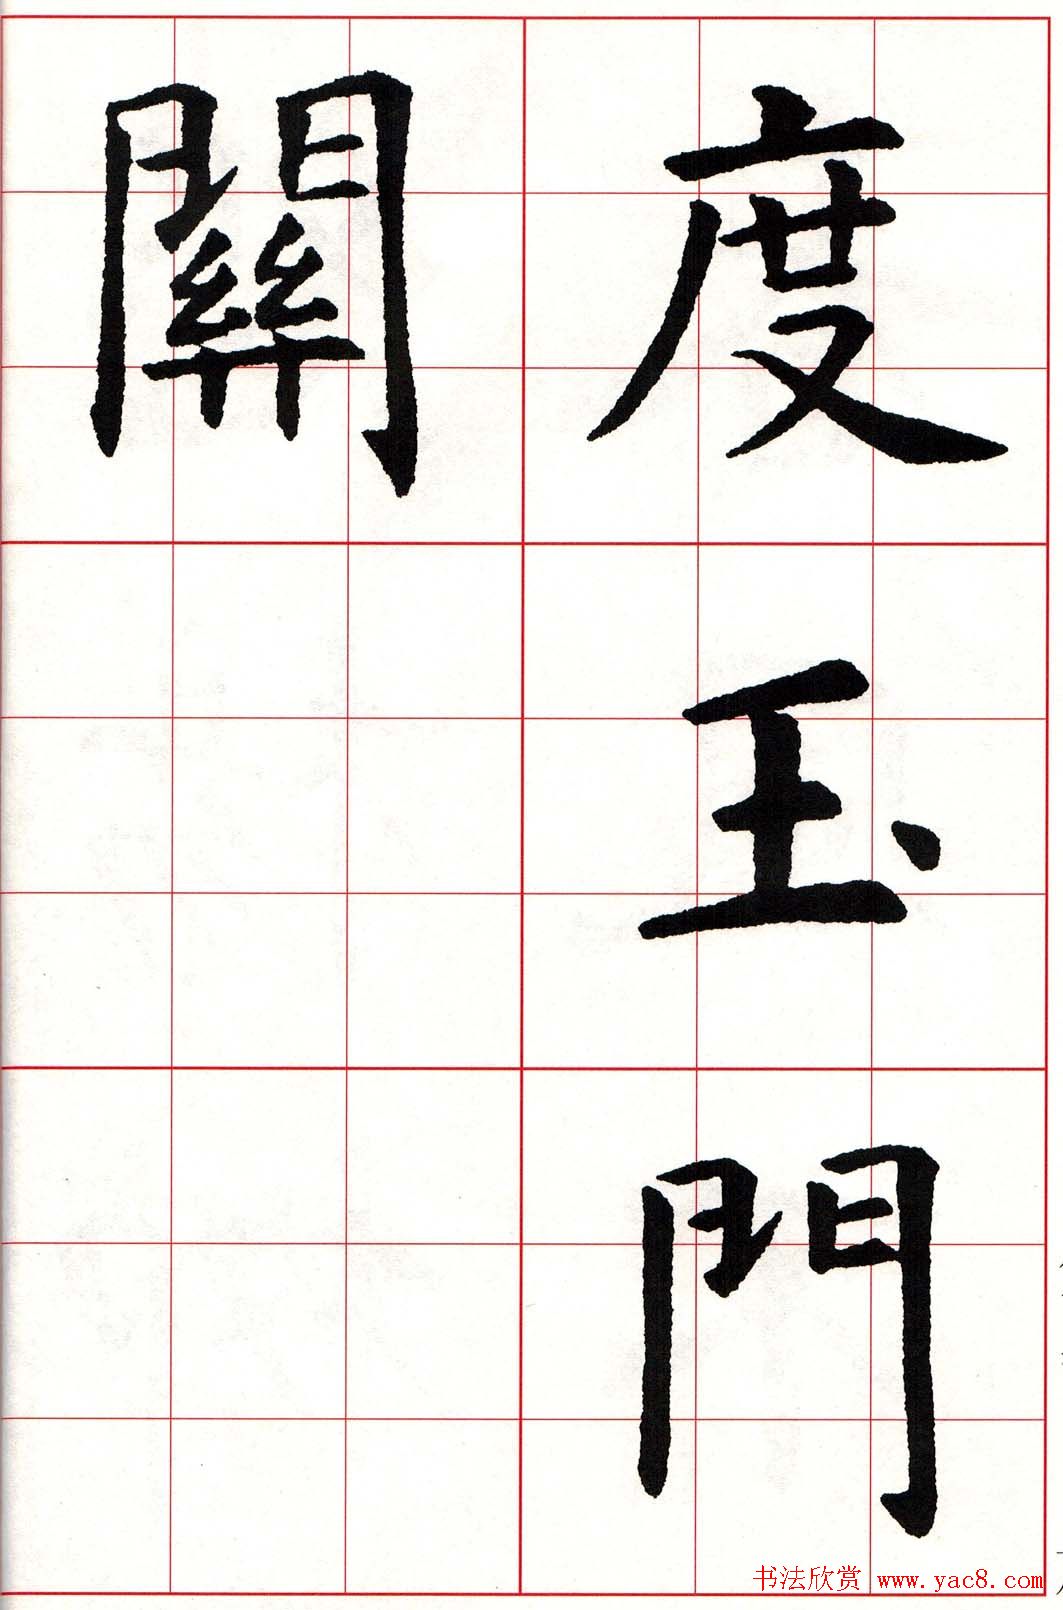 度玉門
關
书法欣赏 www.yac8.com